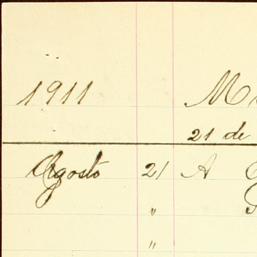 1911
21 de
Agosto 21 A
"
"